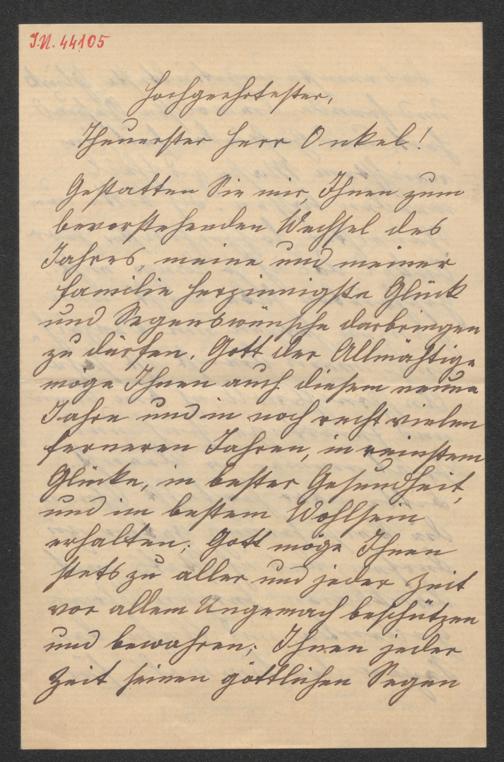 I.N. 44105
Hochgeehrtester,
Theuerster Herr Onkel!
Gestatten Sie mir, Ihnen zum
bevorstehenden Wechsel des
Jahres, meine und meiner
Familie herzinnigste Glück
und Segenswünsche darbringen
zu dürfen. Gott der Allmächtige
möge Ihnen auch diesem neuen
Jahre und in noch recht vielen
ferneren Jahren, in reinstem
Glücke, in bester Gesundheit,
und im bestem Wohlsein
erhalten; Gott möge Ihnen
stets zu aller und jeder Zeit
vor allem Ungemach beschützen
und bewahren; Ihnen jeder
Zeit seinen göttlichen Segen